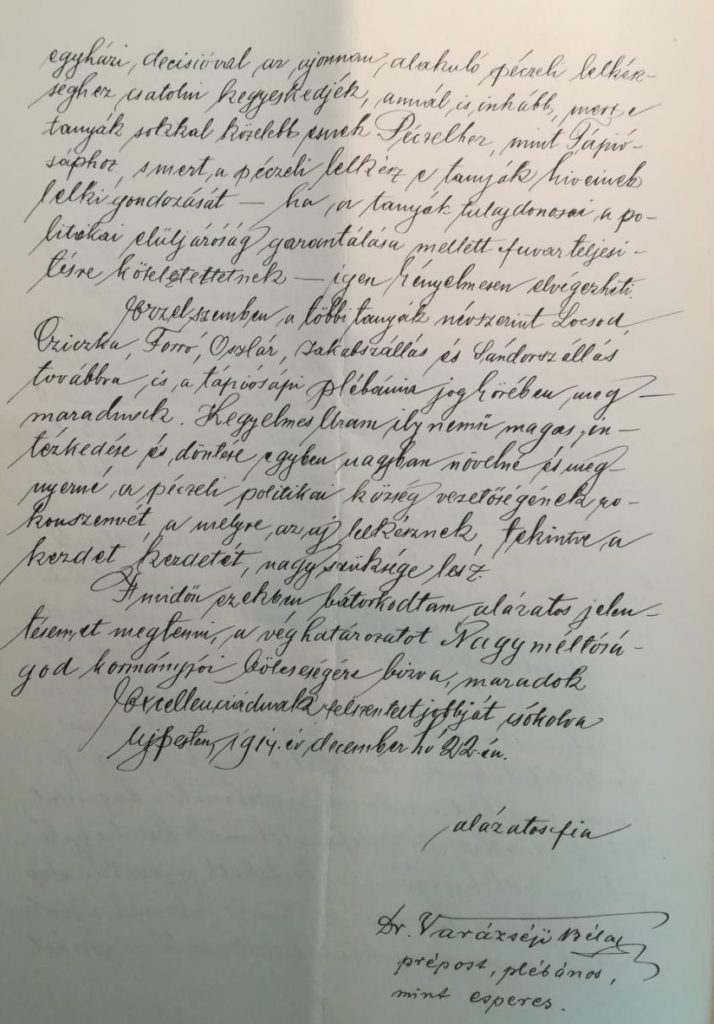 egyházi, decisióval az ujonnan, alakuló péczeli lelkész-
séghez csatolni kegyeskedjék, annál is, inkább, mert e
tanyák sokkal közelebb esnek Péczelhez, mint Tápió-
sáphoz, s mert, a péczeli lelkész e tanyák hiveinek
lelki gondozását — ha, a tanyák tulajdonosai a po-
litikai elüljáróság garantálása mellett fuvar teljesi-
tésre köteleztettnek — igen kényelmesen elvégezheti.
Ezzel szemben, a többi tanyák névszerint Locsod,
Cziczka, Forró, Oszlár, Jakabszállás és Sándorszállás
továbbra, is, a tápiósápi plébánia jogkörében, meg-
maradnak. Kegyelmes Uram ily nemű magas, in-
tézkedése és döntése egyben nagyban növelné és meg-
nyerné, a péczeli politikai község vezetőségének ro-
konszenvét, a melyre, az uj lelkésznek, tekintve, a
kezdet kezdetét, nagy szüksége lesz.
Amidőn ezekben bátorkodtam alázatos jelen-
tésemet megtenni, a véghatározatot Nagyméltósá-
god kormányzói bölcseségére bizva, maradok
Excellenciádnak felszentelt jobbját csókolva
Ujpesten, 1914. év december hó 22-én.
alázatos fia
Dr. Varázséji Béla
prépost, plébános,
mint esperes.